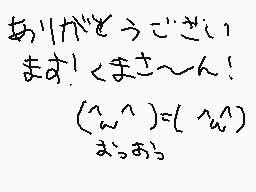 ありがとうござい
ます！くまさ〜ん！
(^ω^)=( ^ω^)
おっおっ